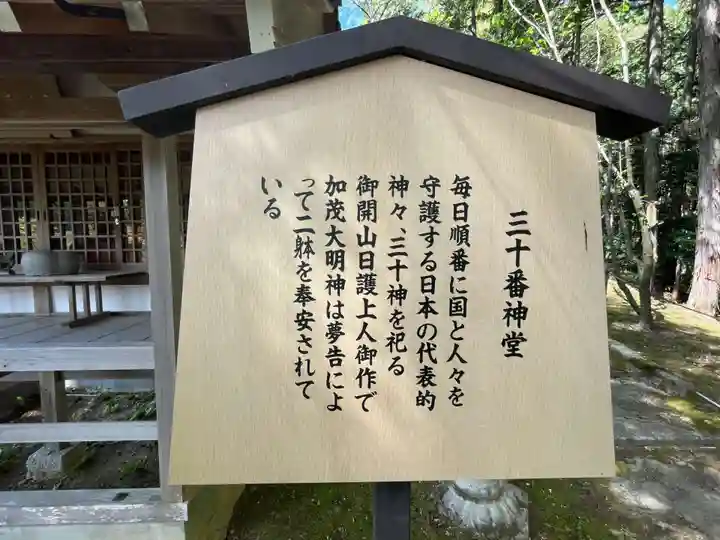 三十番神堂
毎日順番に国と人々を
守護する日本の代表的
神々、三十神を祀る
御開山日護上人御作で
加茂大明神は夢告によ
って二躰を奉安されて
いる